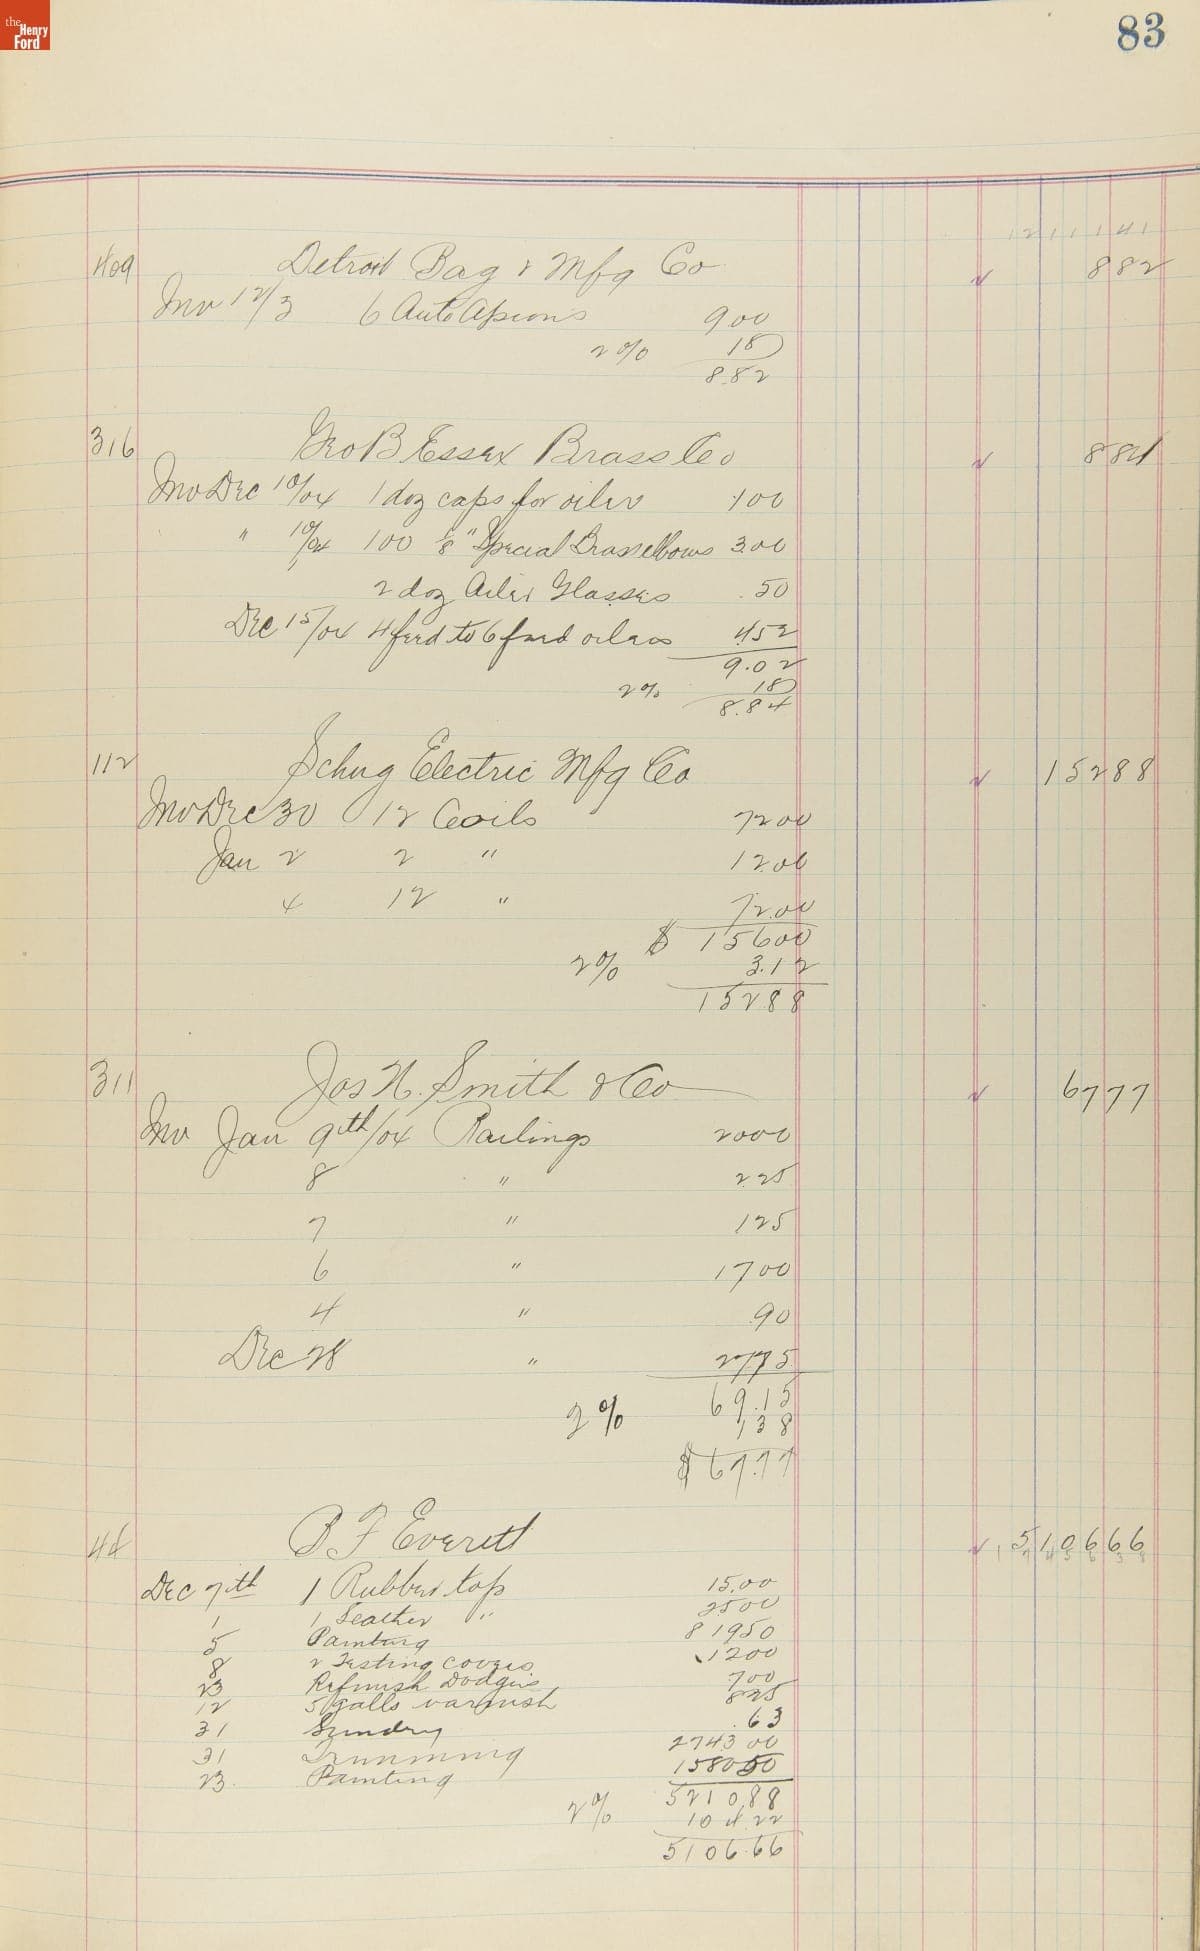 the Henry Ford
83
1211141
409 Detroit Bag & Mfg Co 882
Inv 12/3 6 Auto Aprons 900
2% 18
8.82
316 Geo B Essex Brass Co 884
Inv Dec 10/04 1 doz caps for oiler 1.00
" 10/04 100 1/8" Special Brass elbows 3.00
2 doz Oiler Glasses .50
Dec 15/04 4 feed to 6 feed oilers 4.52
9.02
2% 18
8.84
112 Schug Electric Mfg Co 15288
Inv Dec 30 12 Coils 7200
Jan 2 2 " 12.00
4 12 " 72.00
$ 15600
2% 3.12
15288
311 Jos N. Smith & Co 6777
Inv Jan 9th/04 Railings 2000
8 " 2.25
7 " 125
6 " 1700
4 " .90
Dec 28 " 2775
69.15
2% 138
$67.77
44 B F Everitt 510666
Dec 7th 1 Rubber top 15.00
1 1 Leather " 2500
5 Painting 81950
8 2 Testing covers 1200
23 Refinish Dodgers 700
12 5 galls varnish 825
31 Sundry .63
31 Trimming 274300
23 Painting 158050
5210.88
2% 104.22
5106.66